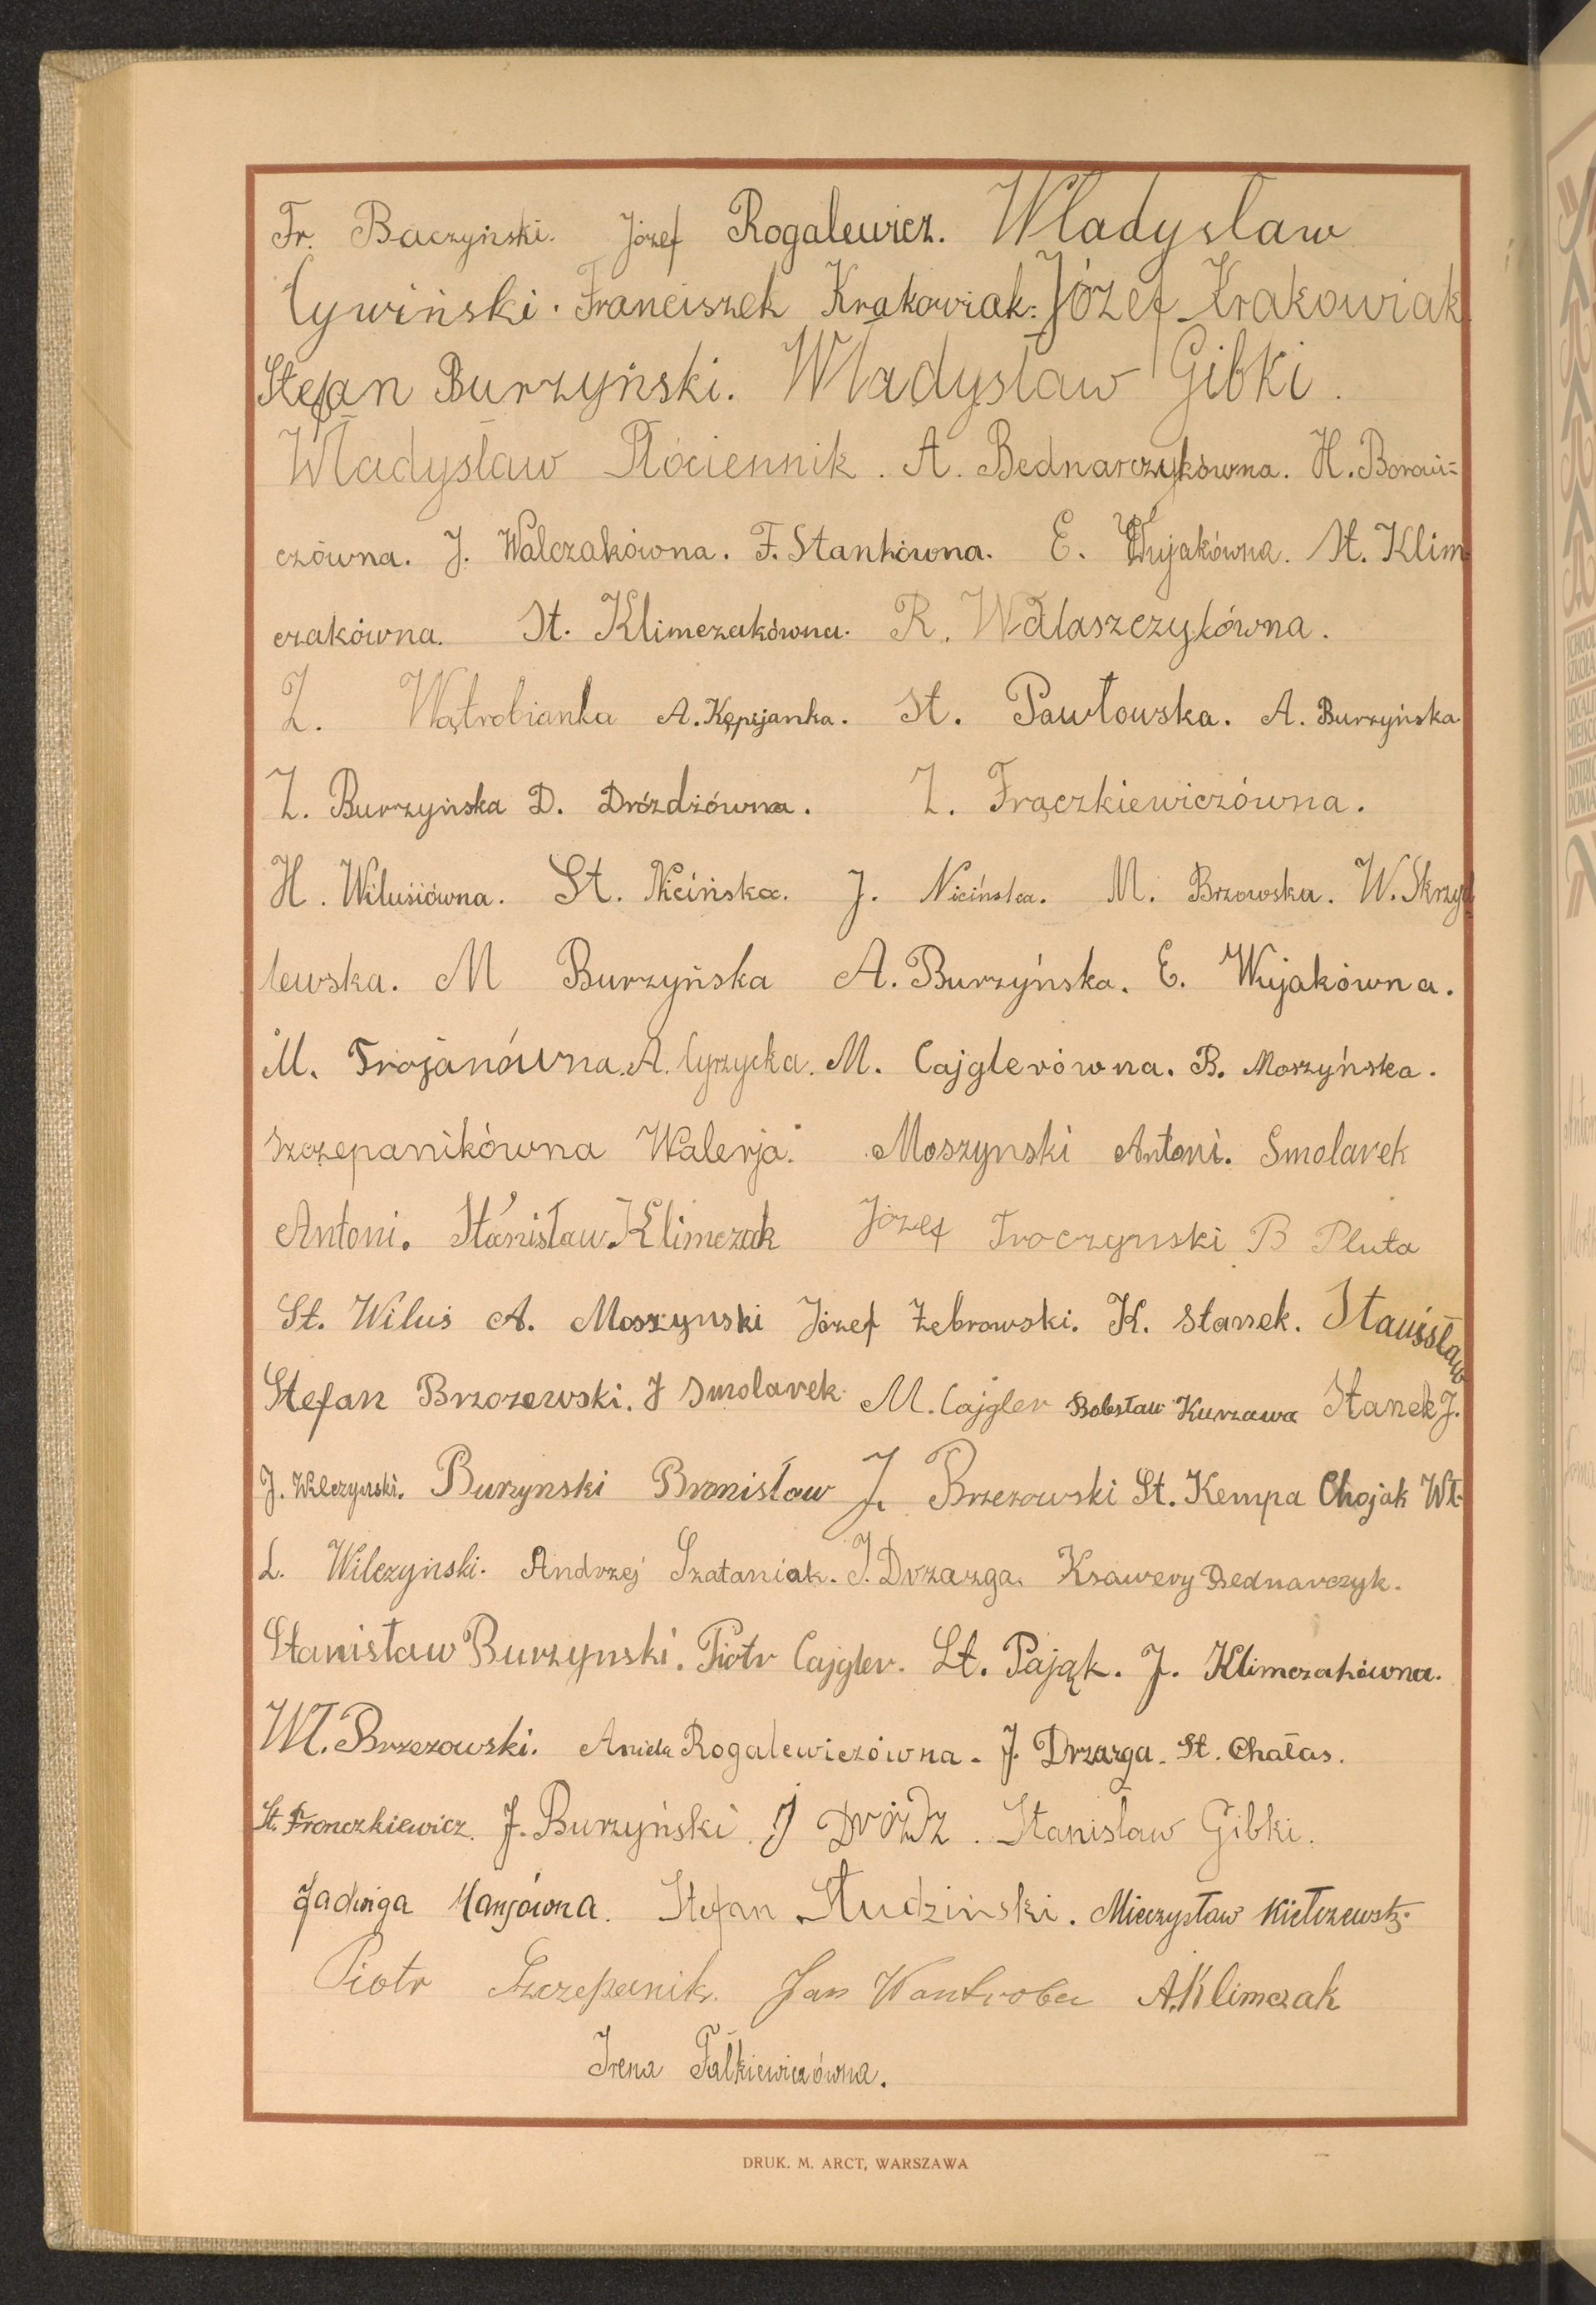 Fr. Baczyński. Józef Rogalewicz. Władysław
Cywiński. Franciszek Krakowiak. Józef Krakowiak
Stefan Burzyński. Władysław Gibki.
Władysław Płóciennik. A. Bednarczykówna. H. Borowi=
czówna. J. Walczakówna. F. Stankówna. E. Wujakówna. St. Klim
czakówna. St. Klimczakówna. R. Wałaszczykówna.
Z. Wątrobianka A. Kępijanka. St. Pawłowska. A. Burzyńska
Z. Burzyńska D. Dróżdżówna. Z. Frączkiewiczówna.
H. Wilusiówna. St. Nicińska. J. Nicińska. M. Brzowska. W. Skrzyd
lewska. M Burzyńska A. Burzyńska. E. Wujakówna.
M. Trojanówna. A. Cyrzycka. M. Cajglerówna. B. Moszyńska.
Szczepanikówna Walerja. Moszynski Antoni. Smolarek
Antoni. Stanisław Klimczak Józef Troczynski B Pluta
St. Wiluś A. Moszynski Józef Żebrowski. K. Stanek. Stanisław
Stefan Brzozowski. J Smolarek M. Cajgler Bolesław Kurzawa Stanek J.
J. Wilczynski. Burzynski Bronisław J. Brzezowski St. Kempa Chojak Wł.
L. Wilczyński. Andrzej Szataniak. J. Drzazga. Ksawery Bednarczyk.
Stanisław Burzynski. Piotr Cajgler. St. Pająk. J. Klimczakówna.
Wł. Brzezowski. Aniela Rogalewiczówna. J. Drzazga. St. Chałas.
St. Fronczkiewicz. J. Burzyński. J Dróżdż. Stanisław Gibki.
Jadwiga Manjówna. Stefan Studziński. Mieczysław Kiełczewski.
Piotr Szczepanik. Jan Wantroba A. Klimczak
Irena Fałkiewiczówna.
DRUK. M. ARCT, WARSZAWA